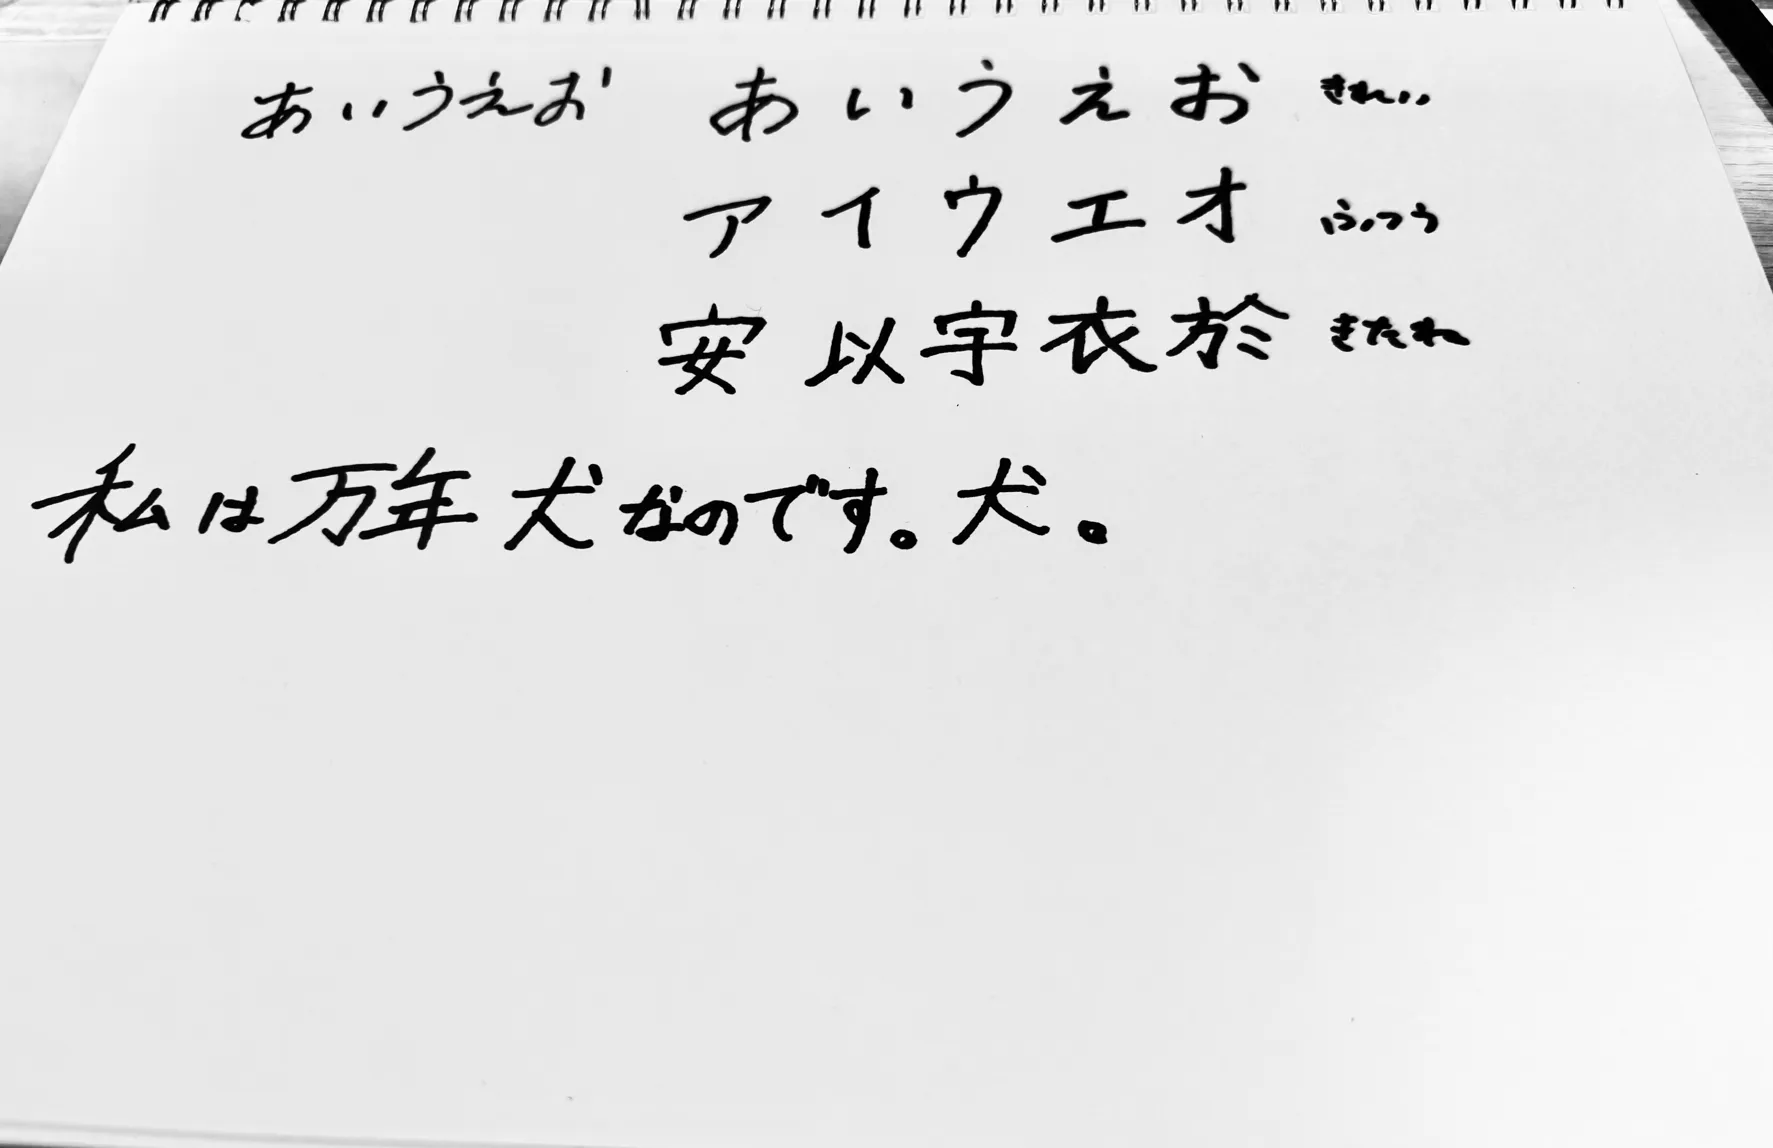 あいうえお あいうえお きれい
アイウエオ ふつう
安以宇衣於 きたね
私は万年犬なのです。犬。